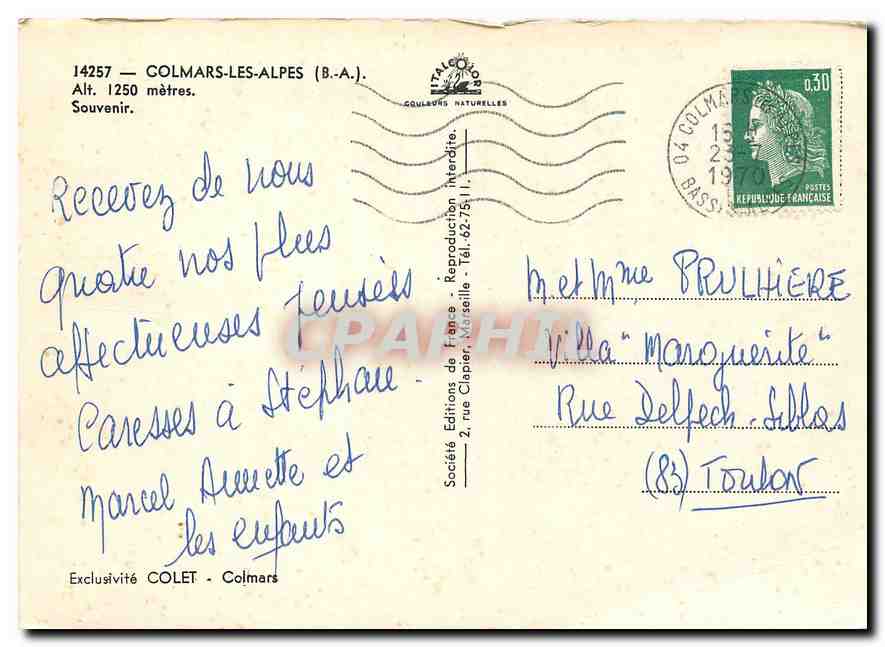 14257 — COLMARS-LES-ALPES (B.-A.).
Alt. 1250 mètres.
Souvenir.
ITALCOLOR
COULEURS NATURELLES
0,30
POSTES
REPUBLIQUE FRANÇAISE
04 COLMARS
23
1970
Recevez de nous
quatre nos plus
affectueuses pensées
Caresses à Stéphane.
Marcel Annette et
les enfants
Société Editions de France - Reproduction interdite.
2, rue Clapier, Marseille - Tél. 62-75-11.
M. et Mme PRULHIERE
Villa "Marguerite"
Rue Delpech - Siblas
(83) Toulon
Exclusivité COLET - Colmars
CPAPHIL